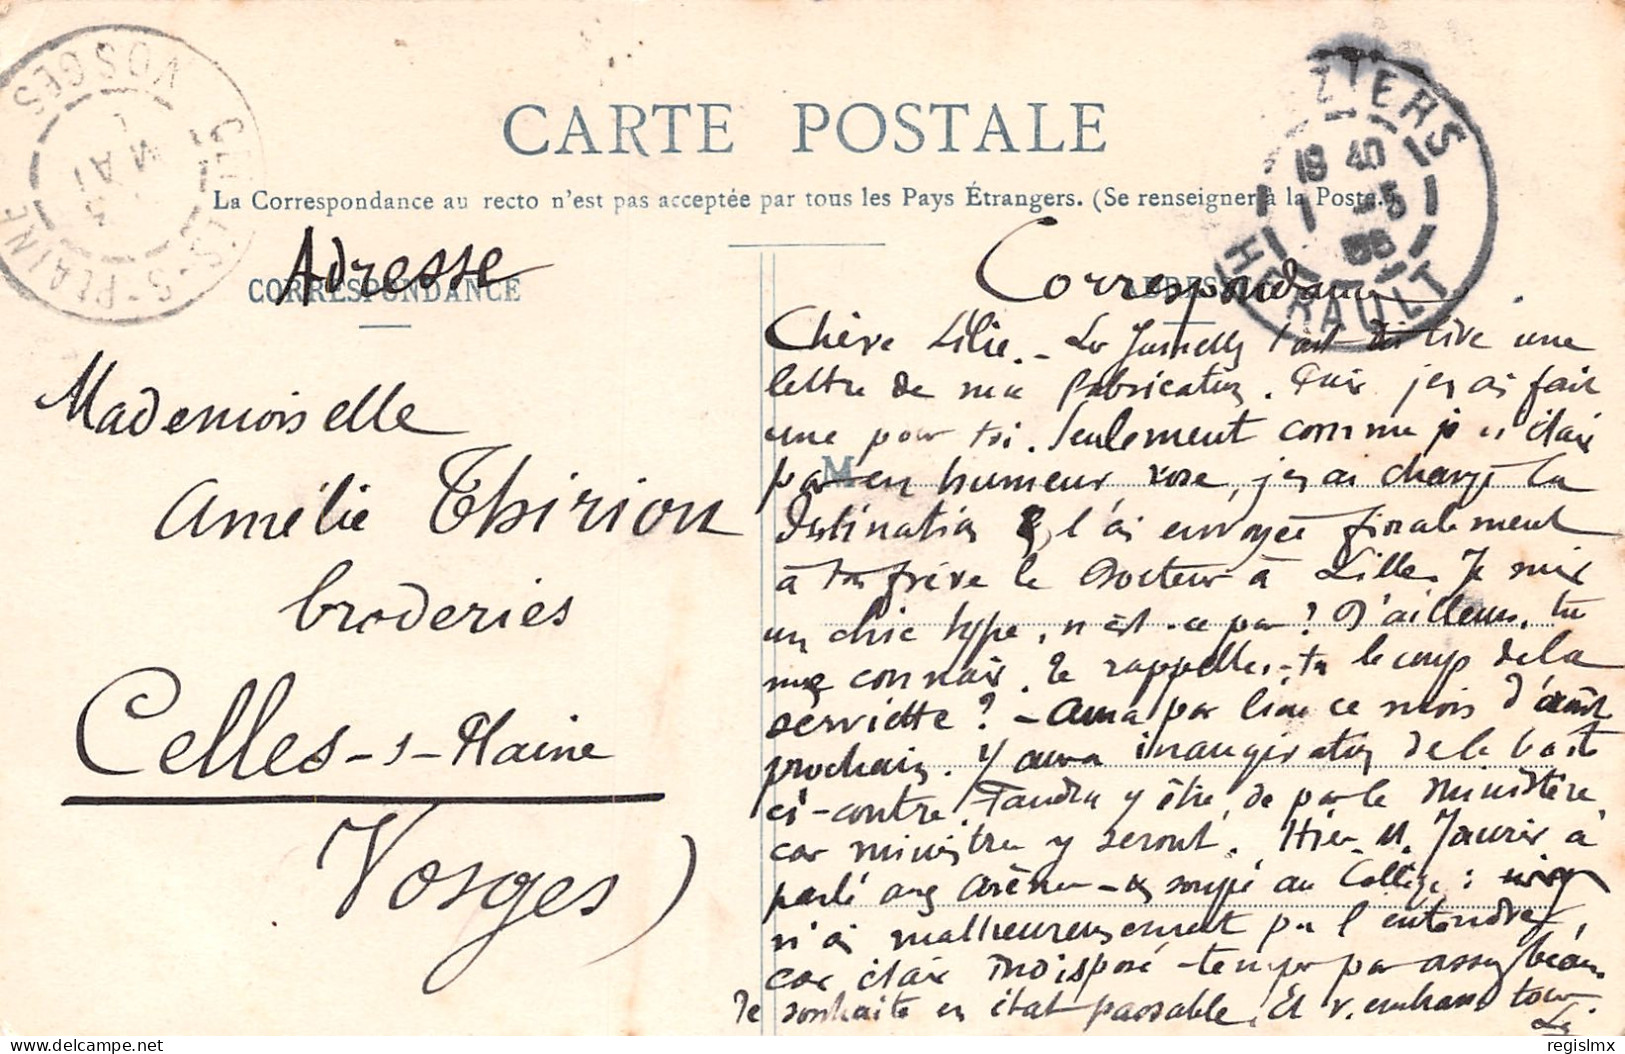 CARTE POSTALE
La Correspondance au recto n'est pas acceptée par tous les Pays Étrangers. (Se renseigner à la Poste.)
CORRESPONDANCE
Adresse
Mademoiselle
Amélie Thirion
broderies
Celles-s-Plaine
Vosges)
Correspondance
Chère Lilie. - Le Jumelly t'ait lire une
lettre de ma fabrication. Puis j'en ai fait
une pour toi. Seulement comme je n'étais
pas en humeur rose, j'en ai changé la
destination & l'ai envoyée finalement
à ton frère le Docteur à Lille. Je suis
un chic type, n'est-ce pas? D'ailleurs, tu
me connais. Te rappelles-tu le coup de la
serviette? - Aura pas lieu ce mois d'août
prochain. Y aura inauguration de le buste
ci-contre. Faudra y être, de par le Ministère,
car ministre y seront. Hier M. Jaurès a
parlé aux arènes - & soupé au Collège:
n'ai malheureusement pu l'entendre,
car étais indisposé - temps pas assez beau.
Te souhaite en état passable. Et v. embrasse tous
M
ZIERS
HERAULT
19 40
1 -5
CELLES-S-PLAINE
VOSGES
MAI
delcampe.net
regislmx